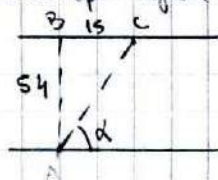 B 15 C
54
α
A